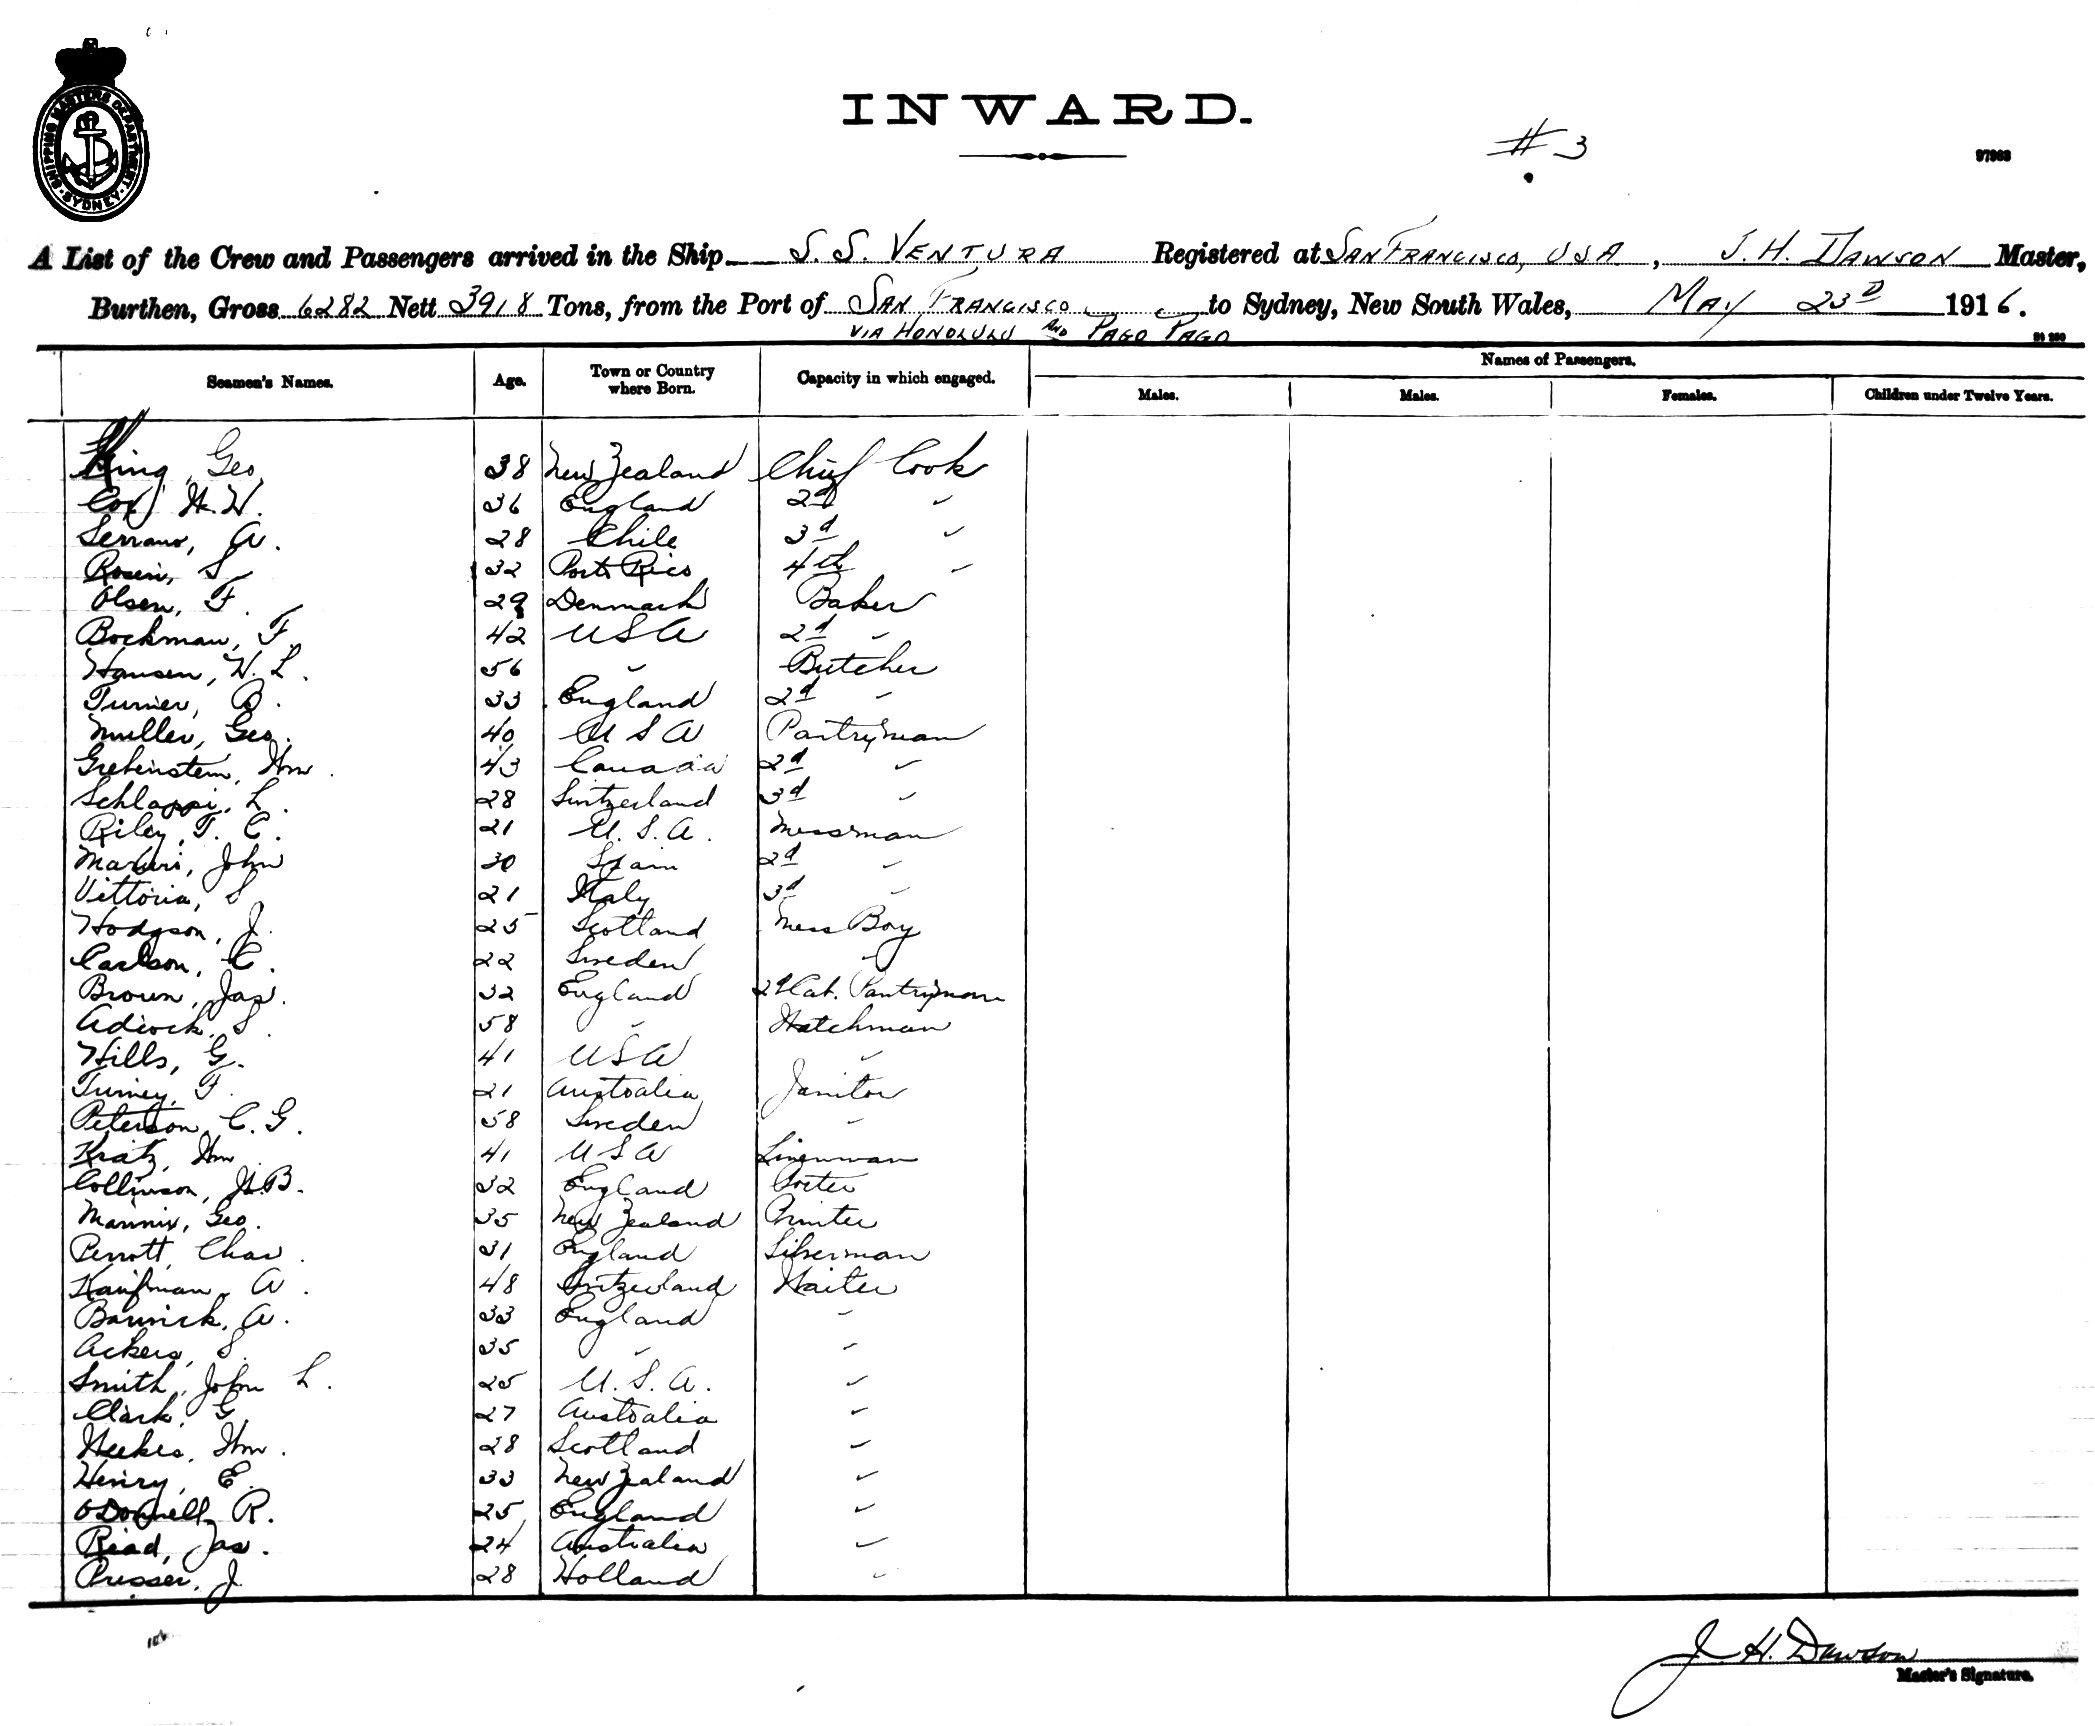 SHIPPING MASTERS DEPARTMENT. SYDNEY
INWARD.
# 3
97963
A List of the Crew and Passengers arrived in the Ship S. S. VENTURA Registered at SAN FRANCISCO, USA, J. H. DAWSON Master,
Burthen, Gross 6282 Nett 3918 Tons, from the Port of SAN FRANCISCO to Sydney, New South Wales, MAY 23D 1916.
VIA HONOLULU AND PAGO PAGO
Seamen's Names. Age. Town or Country where Born. Capacity in which engaged. Names of Passengers.
Males. Males. Females. Children under Twelve Years.
King, Geo 38 New Zealand Chief Cook
Cox, H. W. 36 England 2d "
Serrano, A. 28 Chile 3d "
Rosein, S 32 Porto Rico 4th "
Olsen, F. 29 Denmark Baker
Bockman, F. 42 USA 2d "
Hansen, W. L. 56 " Butcher
Turner, B. 33 England 2d "
Muller, Geo. 40 U S A Pantryman
Grebenstein, Wm. 43 Canada 2d "
Schlappi, L. 28 Switzerland 3d "
Riley, T. C. 21 U. S. A. Messman
John 30 Spain 2d "
Vittoria, S 21 Italy 3d "
Hodgson, J. 25 Scotland Mess Boy
Carlson, C. 22 Sweden "
Brown, Jas. 32 England 2d Cab. Pantryman
Adcock, S. 58 " Watchman
Hills, G. 41 USA "
F. 21 Australia Janitor
Peterson, C. G. 58 Sweden "
Kratz, Wm 41 U S A Linenman
Collinson, H. B. 32 England Porter
Mannix, Geo. 35 New Zealand Printer
Perrott, Chas. 31 England Silverman
Kaufman, A. 48 Switzerland Waiter
Barwick, A. 33 England "
Ackers, S. 35 " "
Smith, John L. 25 U. S. A. "
Clark, G 27 Australia "
Weekes, Wm. 28 Scotland "
Henry, E. 33 New Zealand "
O'Donnell, R. 25 England "
Read, Jas. 24 Australia "
Presser, J. 28 Holland "
J. H. Dawson
Master's Signature.